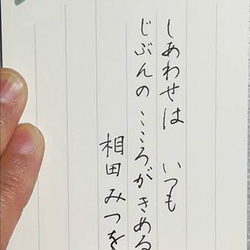 しあわせは いつも
じぶんの こころがきめる
相田みつを